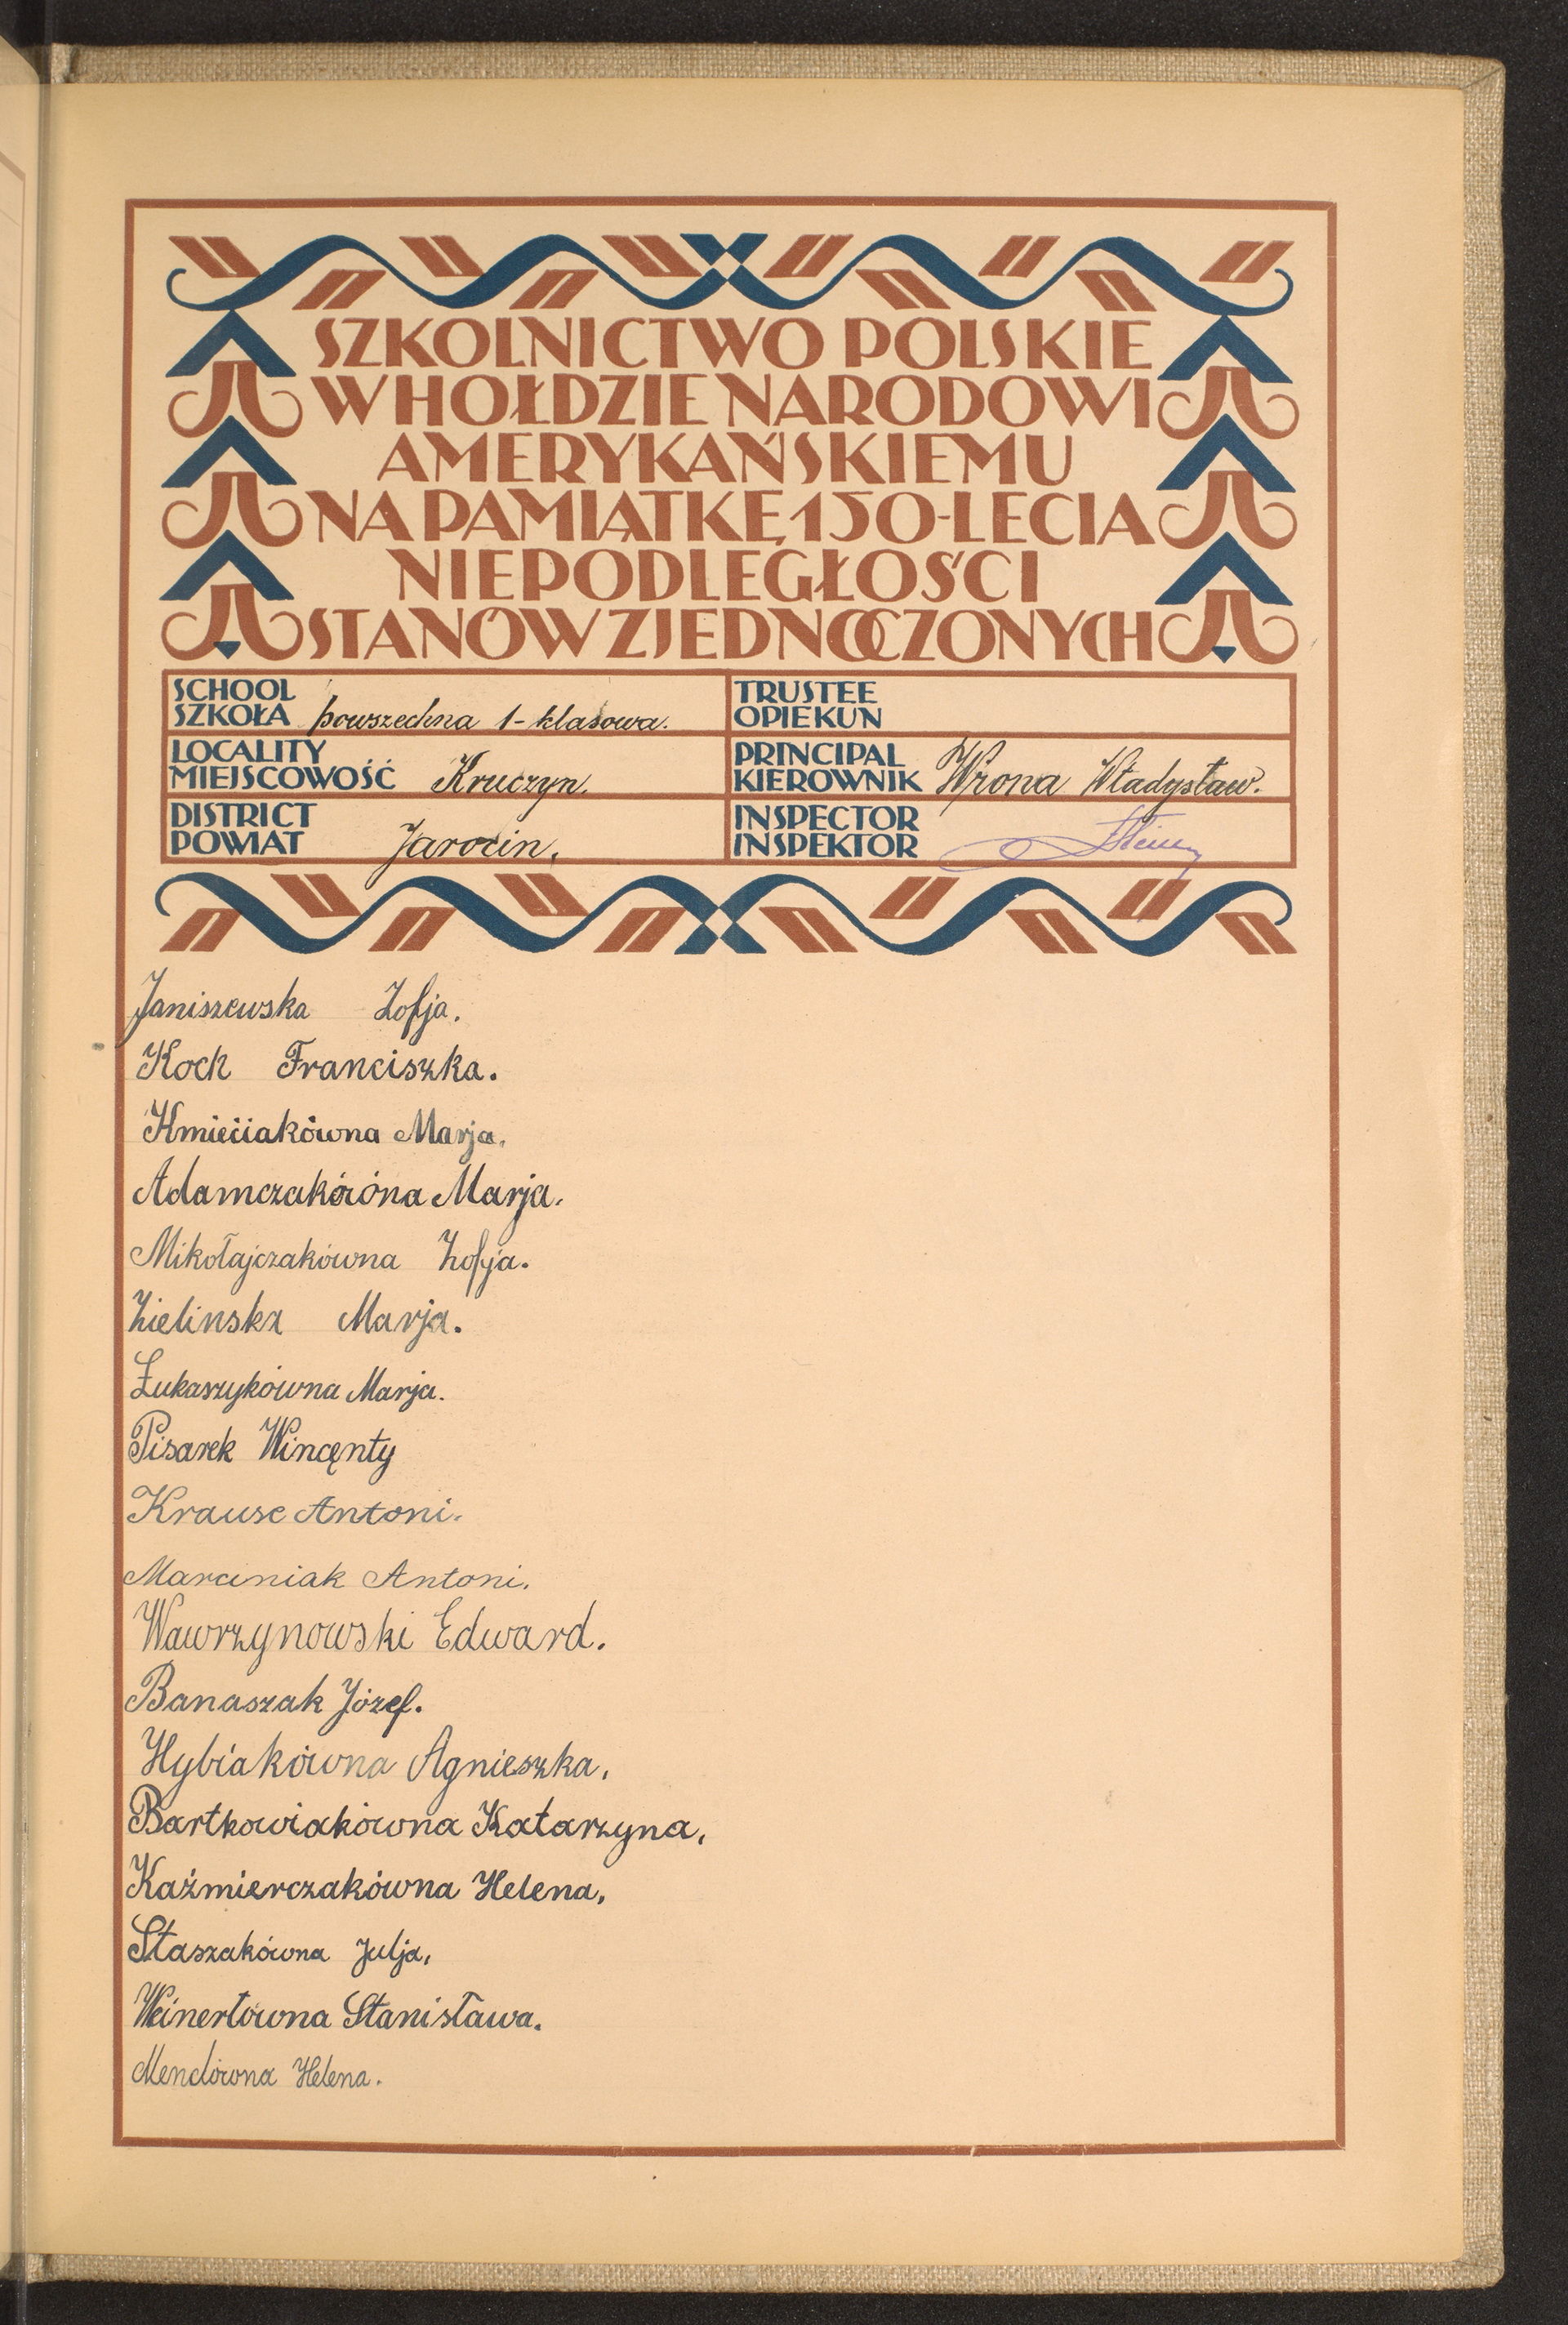 SZKOLNICTWO POLSKIE
W HOŁDZIE NARODOWI
AMERYKAŃSKIEMU
NA PAMIĄTKĘ 150-LECIA
NIEPODLEGŁOŚCI
STANÓW ZJEDNOCZONYCH
SCHOOL
SZKOŁA powszechna 1-klasowa.
TRUSTEE
OPIEKUN
LOCALITY
MIEJSCOWOŚĆ Kruczyn.
PRINCIPAL
KIEROWNIK Wrona Władysław.
DISTRICT
POWIAT Jarocin.
INSPECTOR
INSPEKTOR
Janiszewska Zofja.
Koch Franciszka.
Kmieciakówna Marja.
Adamczakówna Marja.
Mikołajczakówna Zofja.
Zielinska Marja.
Łukaszykówna Marja.
Pisarek Wincęnty
Krause Antoni.
Marciniak Antoni.
Wawrzynowski Edward.
Banaszak Józef.
Hybiakówna Agnieszka.
Bartkowiakówna Katarzyna.
Kaźmierczakówna Helena.
Staszakówna Julja.
Weinertówna Stanisława.
Mendówna Helena.